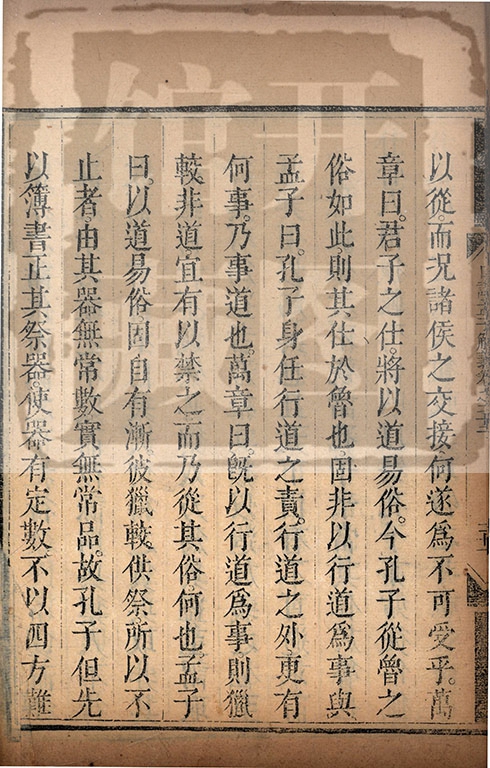 以從。而況諸侯之交接。何遂爲不可受乎。萬
章曰。君子之仕。將以道易俗。今孔子從魯之
俗如此。則其仕於魯也。固非以行道爲事與
孟子曰。孔子身任行道之責。行道之外。更有
何事。乃事道也。萬章曰。旣以行道爲事。則獵
較非道。宜有以禁之。而乃從其俗。何也。孟子
曰。以道易俗。固自有漸。彼獵較供祭。所以不
止者。由其器無常數。實無常品。故孔子但先
以簿書正其祭器。使器有定數。不以四方難